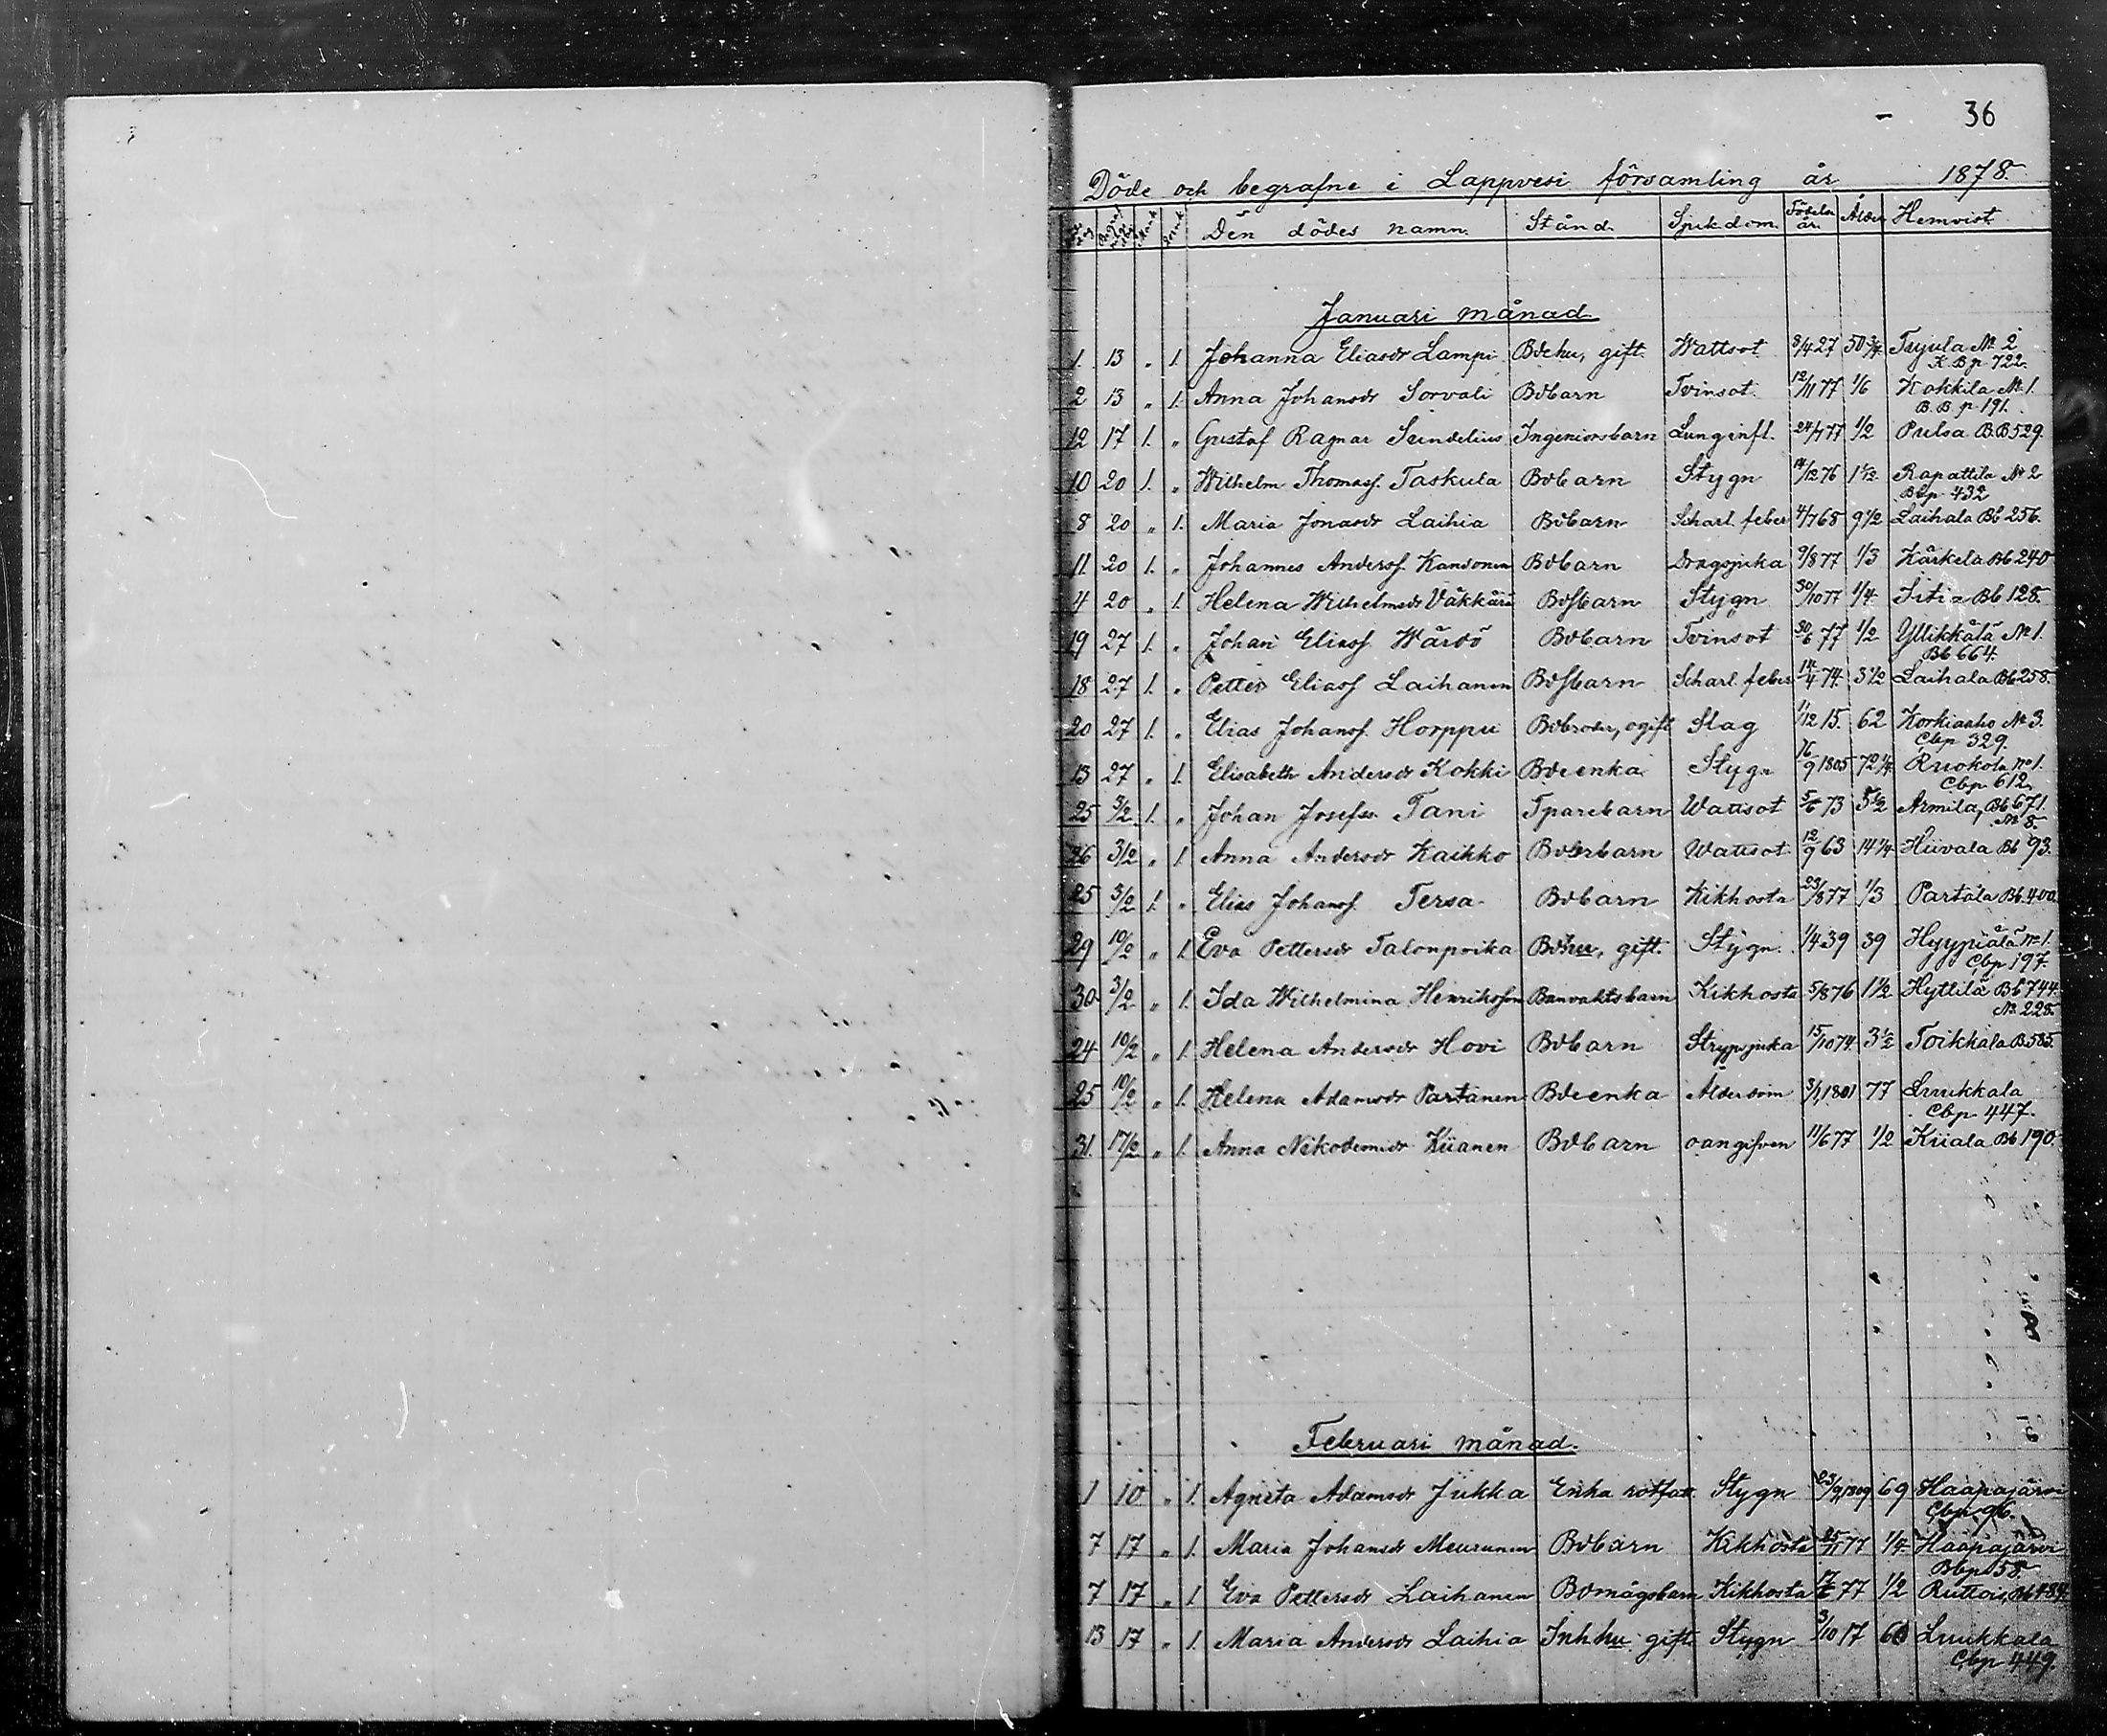 36
Döde och begrafne i Lappvesi församling år 1878.
Den dödes namn. Stånd. Sjukdom. Födelse år. Ålder Hemvist.
Januari månad.
1. 13 „ 1. Johanna Eliasdr Lampi Bdehu, gift. Wattsot 8/4 27 50 3/4 Tsyula No 2
K. Bp 722.
2 13 „ 1. Anna Johansdr Sorvali Bdbarn Tvinsot. 12/11 77 1/6 Kokkila No 1.
B. B. p 191.
12 17 1. „ Gustaf Ragnar Sundelius Ingeniorsbarn Lunginfl. 24/7 77 1/2 Pulsa B.B 529.
10 20 1. „ Wilhelm Thomasf. Taskula Bdbarn Stygn 14/12 76 1 1/12 Rapattila No 2
Bbp 432
8 20 „ 1. Maria Jonasdr Laihia Bdbarn Scharl. feber 4/7 68 9 1/2 Laihala Bb 256.
11. 20 1. „ Johannes Andersf. Kansonen Bdbarn Dragsjuka 9/8 77 1/3 Kärkela Bb 240
4 20 „ 1. Helena Wilhelmsdr Väkkärä Bdsbarn Stygn 30/10 77 1/4 Sitia Bb 128.
19 27 1. „ Johan Eliasf. Wärdö Bdbarn Tvinsot 30/6 77 1/2 Yllikkälä No 1.
Bb 664.
18 27 1. „ Petter Eliasf Laihanen Bdsbarn Scharl. feber 14/4 74. 3 1/2 Laihala Bb 258.
20 27 1. „ Elias Johansf. Horppu Bdbroder, ogift Slag 1/12 15. 62 Korkiaaho No 3.
Cbp 329.
13 27 „ 1. Elisabeth Andersdr Kokki Bdeenka Stygn 16/9 1805 72 1/4 Ruokola No 1.
Cbp 612.
25 3/2 1. „ Johan Josefss. Tani Tparebarn Wattsot 5/6 73 5 1/2 Armila, Bb 671.
No 8.
26 3/2 „ 1 Anna Andersdr Kaikko Bdbrbarn Wattsot 12/9 63 14 1/4 Hiivala Bb 93.
25 3/2 1. „ Elias Johansf. Tersa Bdbarn Kikhosta 23/8 77 1/3 Partala Bb 400.
29 10/2 „ 1. Eva Pettersdr Talonpoika Bdhu, gift. Stygn. 1/4 39 39 Hyypiälä No 1.
Cbp 197.
30 3/2 „ 1. Ida Wilhelmina Henriksson Banvaktsbarn Kikhosta 5/8 76 1 1/2 Hyttilä Bb 744.
No 228.
24 10/2 „ 1. Helena Andersdr Hovi Bdbarn Strypsjuka 15/10 74. 3 1/2 Toikkala B 585.
25 10/2 „ 1. Helena Adamsdr Partanen Bdeenka Ålderdom 3/1 1801 77 Luukkala
Cbp 447.
31. 17/2 „ 1. Anna Nikodemidr Kiianen Bdbarn oangifven 11/6 77 1/2 Kiiala Bb 190.
Februari månad.
1 10 „ 1. Agneta Adamsdr Jukka Enka rotfatt. Stygn 23/9 1809 69 Haapajärvi
Cbp. 96.
7 17 „ 1. Maria Johansdr Meurunen Bdbarn Kikhosta 25/11 77 1/4 Haapajärvi
Bbp 58
7 17 „ 1 Eva Pettersdr Laihanen Bdmågsbarn Kikhosta 17/6 77 1/2 Ruttois, Bb 484.
13 17 „ 1. Maria Andersdr Laihia Inhhu gift. Stygn 3/10 17 60 Luukkala
Cbp 449.